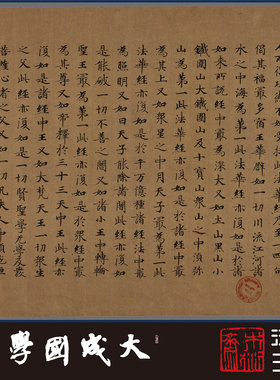 偈其福最多宿王華譬如一切川流江河諸
水之中海為第一此法華經亦復如是於諸
如來所說經中最為深大又如土山黑山小
鐵圍山大鐵圍山及十寶山眾山之中須弥
山為第一此法華經亦復如是於諸經中最
為其上又如眾星之中月天子最為第一此
法華經亦復如是於千万億種諸經法中最
為照明又如日天子能除諸闇此經亦復如
是能破一切不善之闇又如諸小王中轉輪
聖王最為第一此經亦復如是於眾經中最
為其尊又如帝釋於三十三天中王此經亦
復如是諸經中王又如大梵天王一切眾生
之父此經亦復如是一切賢聖學无學及發
菩薩心者之父又如一切凡夫人中須陀洹
大成國學